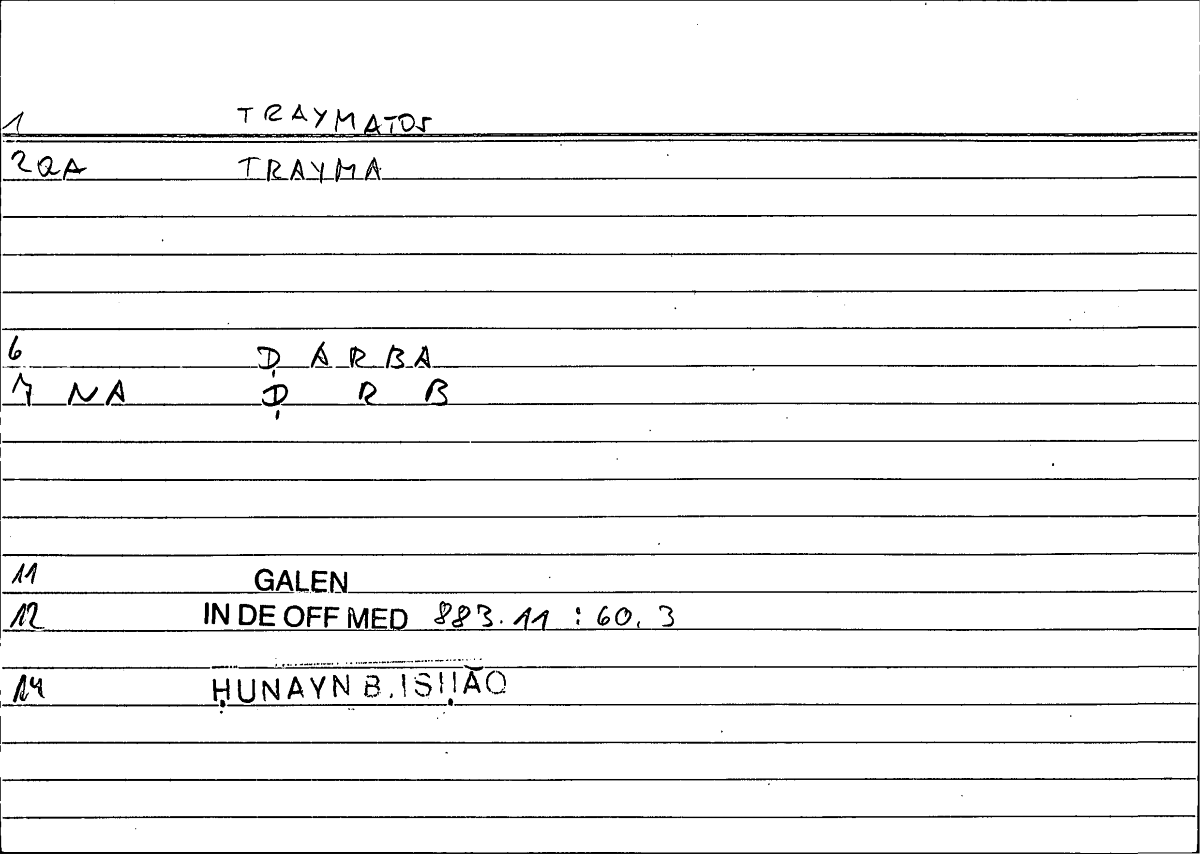 1 TRAYMATOS
2QA TRAYMA
6 ḌARBA
7 NA Ḍ R B
11 GALEN
12 IN DE OFF MED 883.11 : 60.3
14 ḤUNAYN B. ISḤĀQ